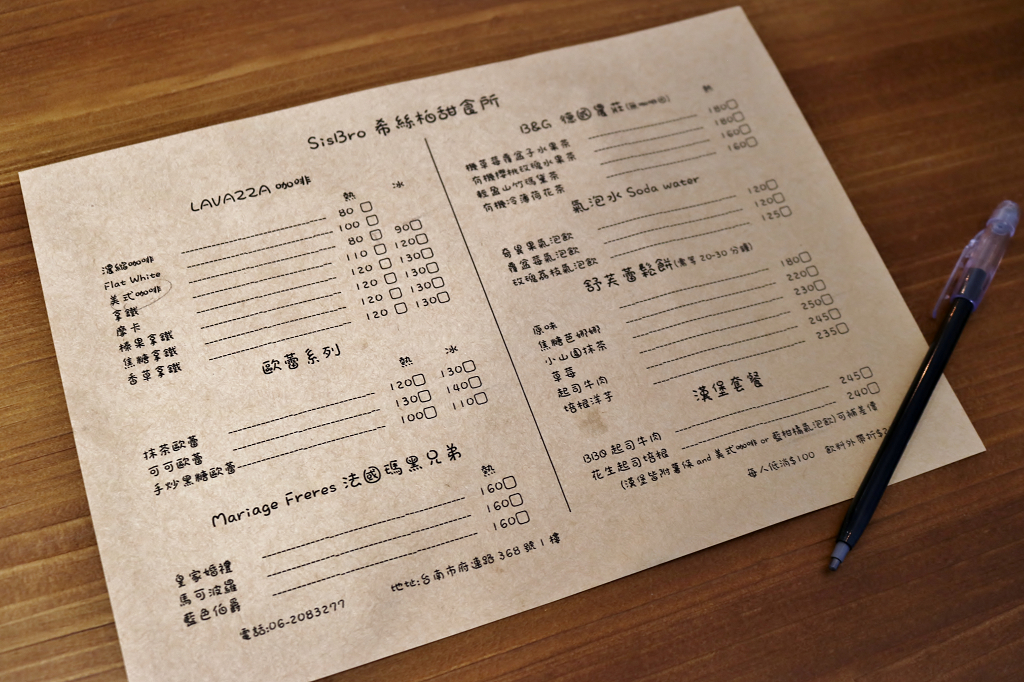 SisBro 希絲柏甜食所
LAVAZZA 咖啡
熱 冰
濃縮咖啡 80
Flat White 100
美式咖啡 80 90
拿鐵 110 120
摩卡 120 130
榛果拿鐵 120 130
焦糖拿鐵 120 130
香草拿鐵 120 130
歐蕾系列
熱 冰
抹茶歐蕾 120 130
可可歐蕾 130 140
手炒黑糖歐蕾 100 110
Mariage Freres 法國瑪黑兄弟
熱
皇家婚禮 160
馬可波羅 160
藍色伯爵 160
電話:06-2083277
地址:台南市府連路 368 號 1 樓
B&G 德國農莊(無咖啡因)
熱
機草莓覆盆子水果茶 180
有機櫻桃玫瑰水果茶 180
輕盈山竹瑪黛茶 160
有機冷薄荷花茶 160
氣泡水 Soda water
奇異果氣泡飲 120
覆盆莓氣泡飲 120
玫瑰荔枝氣泡飲 125
舒芙蕾鬆餅(需等 20-30 分鐘)
原味 180
焦糖芭娜娜 220
小山園抹茶 230
草莓 250
起司牛肉 245
培根洋子 235
漢堡套餐
BBQ 起司牛肉 245
花生起司培根 240
(漢堡皆附薯條 and 美式咖啡 or 藍柑橘氣泡飲)可補差價
每人低消$100 飲料外帶折$